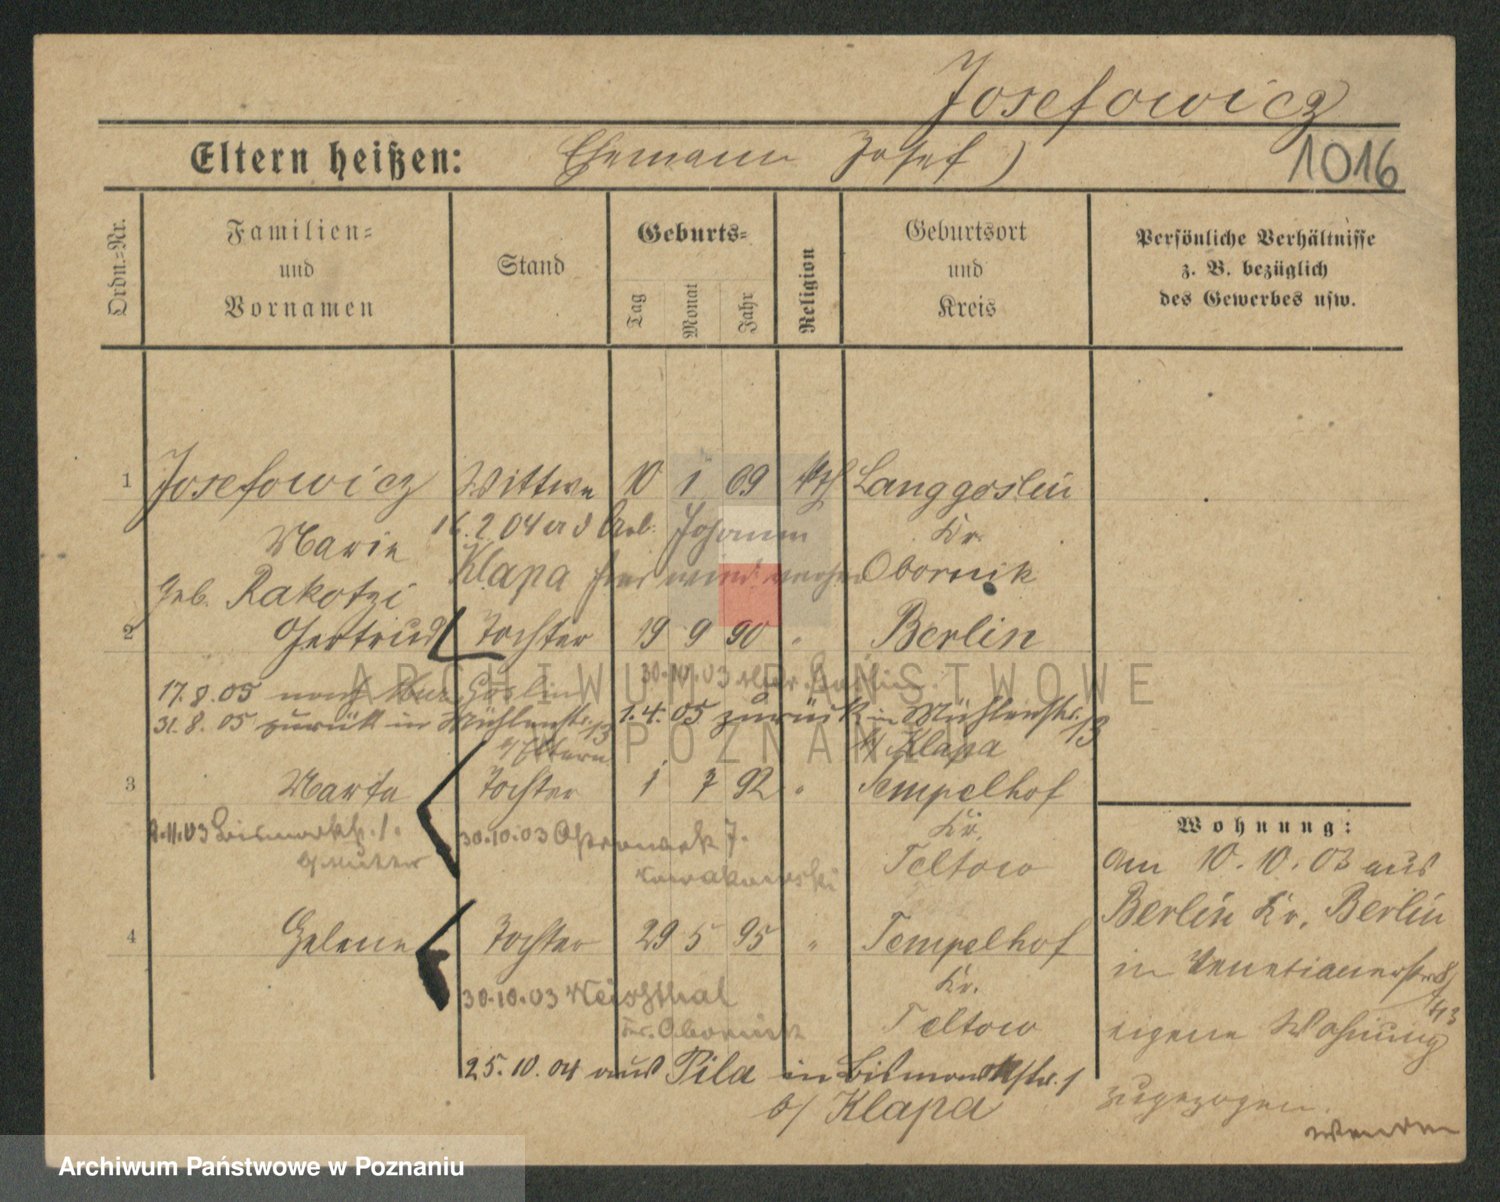 Josefowicz
Eltern heißen: Ehemann Josef )
1016
Ordn.-Nr.
Familien-
und
Vornamen
Stand
Geburts-
Tag
Monat
Jahr
Religion
Geburtsort
und
Kreis
Persönliche Verhältnisse
z. B. bezüglich
des Gewerbes usw.
1 Josefowicz Wittwe 10 1 69 kth Langgoslin
16.2.04 Arb. Johann Kr.
Marie
Klapa Obornik
geb. Rakotzi
2 Gertrud Tochter 19 9 90 " Berlin
30.10.03
17.8.05 nach Mur. Goslin
31.8.05 zurück in Mühlenstr. 13 1.4.05 zurück in Mühlenstr. 13
b/ Eltern b/ Klapa
3 Marta Tochter 1 7 92 " Tempelhof
Kr.
Teltow
9.11.03 Bismarkstr. 1. 30.10.03 7.
b/ Mutter
4 Helene Tochter 29 5 95 " Tempelhof
Kr.
Teltow
30.10.03
Kr. Obornik
25.10.04 aus Pila in Bismarckstr. 1
b/ Klapa
Wohnung:
Am 10.10.03 aus
Berlin Kr. Berlin
in Venetianerstr. 8/
eigene Wohnung
zugezogen.
wenden
ARCHIWUM PAŃSTWOWE
W POZNANIU
Archiwum Państwowe w Poznaniu